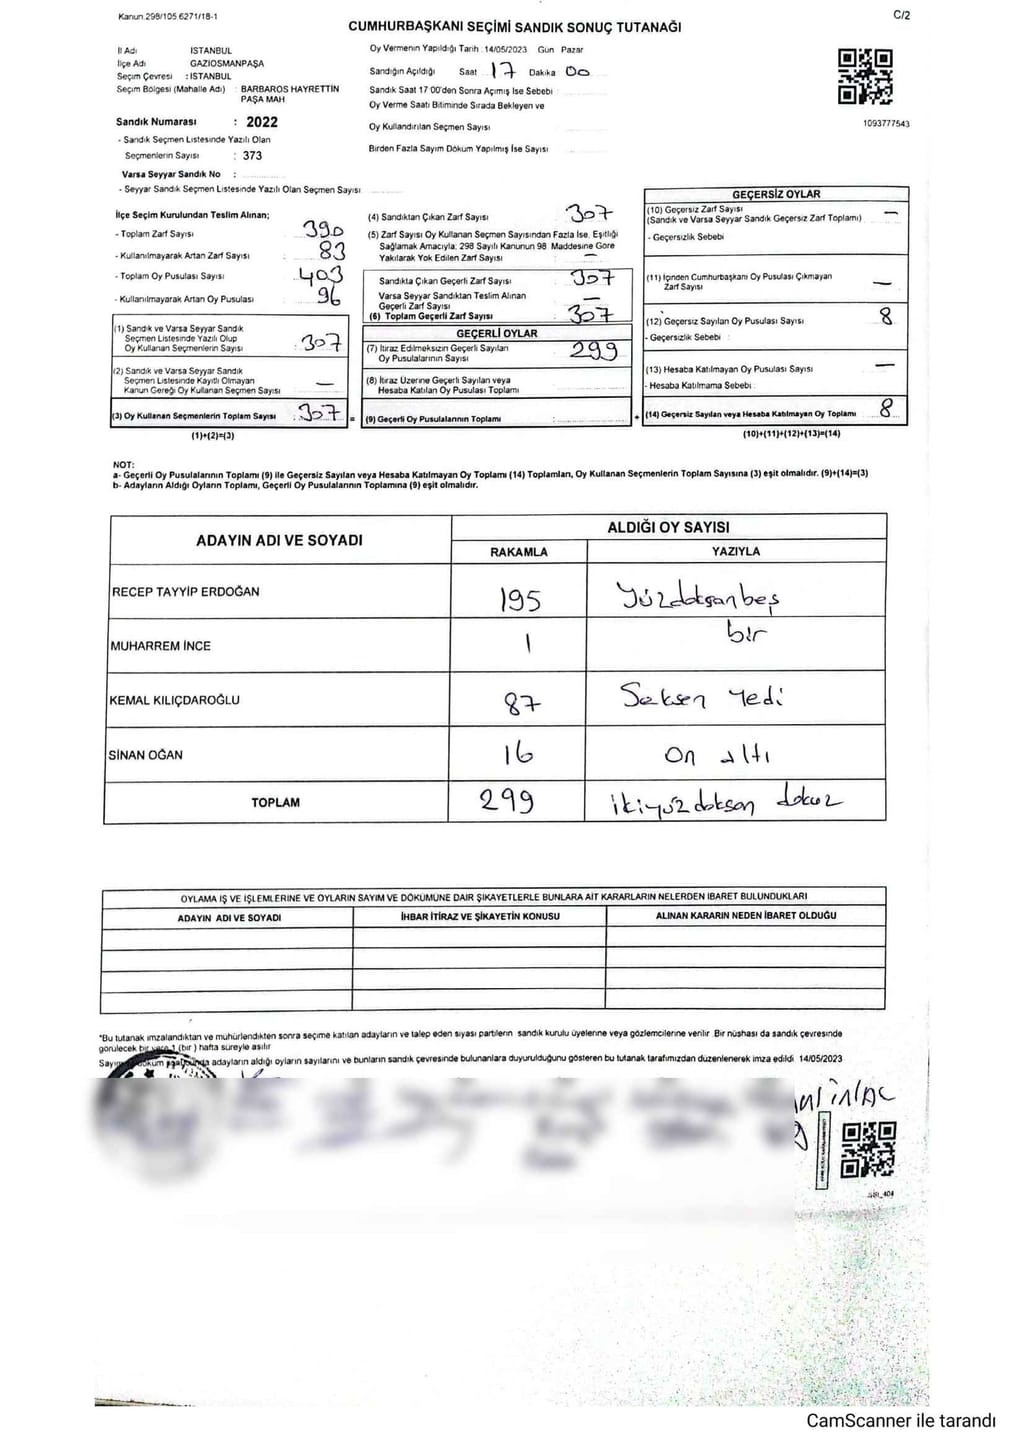 Kanun.298/105.6271/18-1
C/2
CUMHURBAŞKANI SEÇİMİ SANDIK SONUÇ TUTANAĞI
İl Adı İSTANBUL
İlçe Adı GAZİOSMANPAŞA
Seçim Çevresi : İSTANBUL
Seçim Bölgesi (Mahalle Adı) : BARBAROS HAYRETTİN
PAŞA MAH
Sandık Numarası : 2022
- Sandık Seçmen Listesinde Yazılı Olan
Seçmenlerin Sayısı : 373
Varsa Seyyar Sandık No :
- Seyyar Sandık Seçmen Listesinde Yazılı Olan Seçmen Sayısı
Oy Vermenin Yapıldığı Tarih : 14/05/2023 Gün Pazar
Sandığın Açıldığı Saat 17 Dakika 00
Sandık Saat 17:00'den Sonra Açımış İse Sebebi
Oy Verme Saati Bitiminde Sırada Bekleyen ve
Oy Kullandırılan Seçmen Sayısı
Birden Fazla Sayım Döküm Yapılmış İse Sayısı
1093777543
İlçe Seçim Kurulundan Teslim Alınan;
- Toplam Zarf Sayısı 390
- Kullanılmayarak Artan Zarf Sayısı : 83
- Toplam Oy Pusulası Sayısı : 403
- Kullanılmayarak Artan Oy Pusulası 96
(1) Sandık ve Varsa Seyyar Sandık
Seçmen Listesinde Yazılı Olup
Oy Kullanan Seçmenlerin Sayısı : 307
(2) Sandık ve Varsa Seyyar Sandık
Seçmen Listesinde Kayıtlı Olmayan
Kanun Gereği Oy Kullanan Seçmen Sayısı —
(3) Oy Kullanan Seçmenlerin Toplam Sayısı : 307 =
(1)+(2)=(3)
(4) Sandıktan Çıkan Zarf Sayısı 307
(5) Zarf Sayısı Oy Kullanan Seçmen Sayısından Fazla İse, Eşitliği
Sağlamak Amacıyla; 298 Sayılı Kanunun 98. Maddesine Göre
Yakılarak Yok Edilen Zarf Sayısı : —
Sandıkta Çıkan Geçerli Zarf Sayısı : 307
Varsa Seyyar Sandıktan Teslim Alınan
Geçerli Zarf Sayısı —
(6) Toplam Geçerli Zarf Sayısı : 307
GEÇERLİ OYLAR
(7) İtiraz Edilmeksizin Geçerli Sayılan
Oy Pusulalarının Sayısı 299
(8) İtiraz Üzerine Geçerli Sayılan veya
Hesaba Katılan Oy Pusulası Toplamı
(9) Geçerli Oy Pusulalarının Toplamı : +
GEÇERSİZ OYLAR
(10) Geçersiz Zarf Sayısı
(Sandık ve Varsa Seyyar Sandık Geçersiz Zarf Toplamı) —
- Geçersizlik Sebebi
(11) İçinden Cumhurbaşkanı Oy Pusulası Çıkmayan
Zarf Sayısı —
(12) Geçersiz Sayılan Oy Pusulası Sayısı 8
- Geçersizlik Sebebi :
(13) Hesaba Katılmayan Oy Pusulası Sayısı —
- Hesaba Katılmama Sebebi :
(14) Geçersiz Sayılan veya Hesaba Katılmayan Oy Toplamı 8
(10)+(11)+(12)+(13)=(14)
NOT:
a- Geçerli Oy Pusulalarının Toplamı (9) ile Geçersiz Sayılan veya Hesaba Katılmayan Oy Toplamı (14) Toplamları, Oy Kullanan Seçmenlerin Toplam Sayısına (3) eşit olmalıdır. (9)+(14)=(3)
b- Adayların Aldığı Oyların Toplamı, Geçerli Oy Pusulalarının Toplamına (9) eşit olmalıdır.
ADAYIN ADI VE SOYADI ALDIĞI OY SAYISI
RAKAMLA YAZIYLA
RECEP TAYYİP ERDOĞAN 195 Yüzdoksanbeş
MUHARREM İNCE 1 bir
KEMAL KILIÇDAROĞLU 87 Seksen Yedi
SİNAN OĞAN 16 On altı
TOPLAM 299 ikiyüzdoksan dokuz
OYLAMA İŞ VE İŞLEMLERİNE VE OYLARIN SAYIM VE DÖKÜMÜNE DAİR ŞİKAYETLERLE BUNLARA AİT KARARLARIN NELERDEN İBARET BULUNDUKLARI
ADAYIN ADI VE SOYADI İHBAR İTİRAZ VE ŞİKAYETİN KONUSU ALINAN KARARIN NEDEN İBARET OLDUĞU
*Bu tutanak imzalandıktan ve mühürlendikten sonra seçime katılan adayların ve talep eden siyasi partilerin sandık kurulu üyelerine veya gözlemcilerine verilir. Bir nüshası da sandık çevresinde
görülecek bir yere 1 (bir) hafta süreyle asılır
adayların aldığı oyların sayılarını ve bunların sandık çevresinde bulunanlara duyurulduğunu gösteren bu tutanak tarafımızdan düzenlenerek imza edildi. 14/05/2023
CamScanner ile tarandı